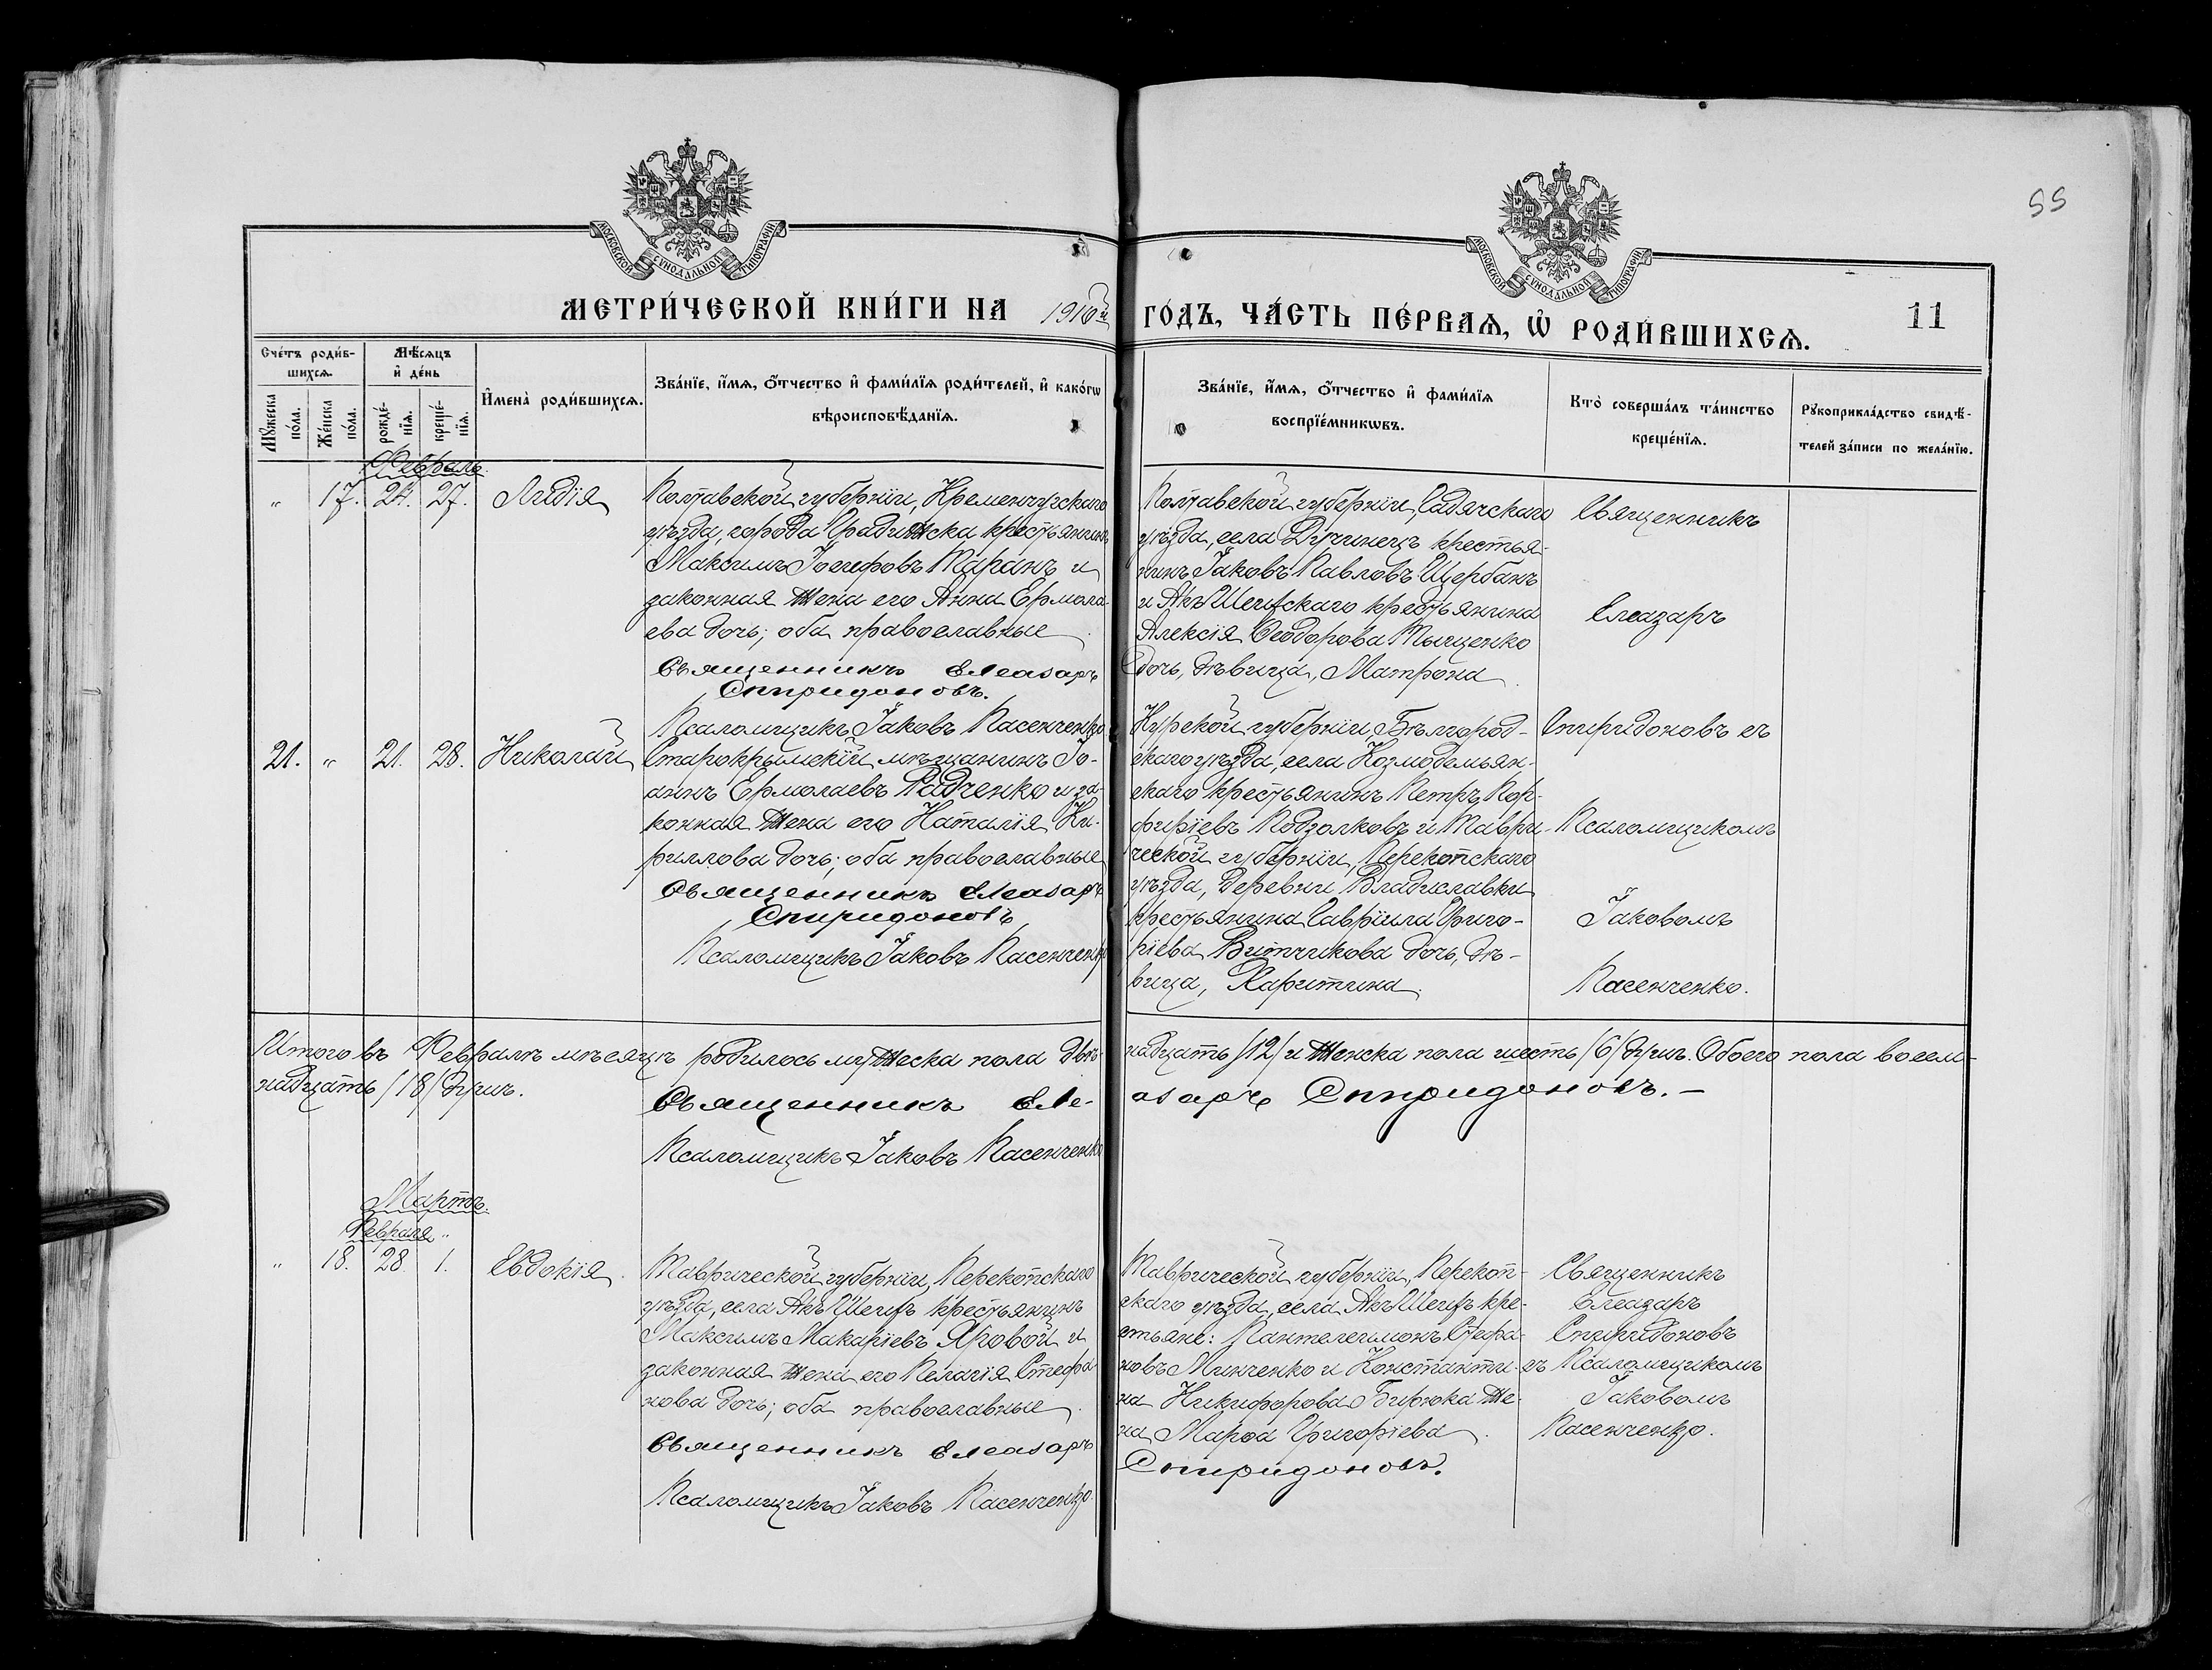 55
МОСКОВСКОЙ СѴНОДАЛЬНОЙ ТИПОГРАФІИ
МОСКОВСКОЙ СѴНОДАЛЬНОЙ ТИПОГРАФІИ
МЕТРИ́ЧЕСКОЙ КНИ́ГИ НА 1910й ГО́ДЪ, ЧА́СТЬ ПЕ́РВАѦ, Ѽ РОДИ́ВШИХСѦ. 11
Сче́тъ роди́в-
шихсѧ.
Мѣ́сѧцъ
и҆ де́нь
Мꙋ́жеска
по́ла.
Же́нска
по́ла.
рожде́-
нїѧ.
креще́-
нїѧ.
И҆мена̀ роди́вшихсѧ.
Зва́нїе, и҆́мѧ, ѻ҆́тчество и҆ фами́лїѧ роди́телей, и҆ како́гѡ
вѣроисповѣ́данїѧ.
Зва́нїе, и҆́мѧ, ѻ҆́тчество и҆ фами́лїѧ
воспрїе́мникѡвъ.
Кто̀ соверша́лъ та́инство
креще́нїѧ.
Рꙋкоприкла́дство свидѣ́-
телей за́писи по жела́нїю.
Февраль.
" 17. 24. 27. Лидія
Полтавской губерніи, Кременчугскаго
уѣзда, города Градижска крестьянинъ
Максимъ Іосифовъ Таранъ и
законная жена его Анна Ермола-
ева дочь; оба православные.
Священникъ Елеазаръ
Спиридоновъ.
Псаломщикъ Іаковъ Пасенченко
Полтавской губерніи, Гадячскаго
уѣзда, села Лучинецъ крестья-
нинъ Іаковъ Павловъ Щербань
и Акъ Шеихскаго крестьянина
Алексія Ѳеодорова Тыщенко
дочь, дѣвица, Матрона.
Священникъ
Елеазаръ
Спиридоновъ съ
Псаломщикомъ
Іаковомъ
Пасенченко.
21. " 21. 28. Николай
Старокрымскій мѣщанинъ Іо-
аннъ Ермолаевъ Радченко и за-
конная жена его Наталія Ки-
риллова дочь; оба православные
Священникъ Елеазаръ
Спиридоновъ
Псаломщикъ Іаковъ Пасенченко
Курской губерніи, Бѣлгород-
скаго уѣзда, села Козмодемьян-
скаго крестьянинъ Петръ Пор-
фиріевъ Подзолковъ и Таври-
ческой губерніи, Перекопскаго
уѣзда, деревни Владиславки
крестьянина Гавріила Григо-
ріева Витчикова дочь, дѣ-
вица, Харитина.
Итого въ Февралѣ мѣсяцѣ родилось мужеска пола двѣ- надцать /12/ и женска пола шесть /6/ душъ. Обоего пола восем-
надцать /18/ душъ.
Священникъ Еле- азаръ Спиридоновъ.-
Псаломщикъ Іаковъ Пасенченко
Мартъ.
Февраля "
" 18. 28. 1. Евдокія.
Таврической губерніи, Перекопскаго
уѣзда, села Акъ Шеихъ крестьянинъ
Максимъ Макаріевъ Яровой и
законная жена его Пелагія Стефа-
нова дочь; оба православные.
Священникъ Елеазаръ
Спиридоновъ.
Псаломщикъ Іаковъ Пасенченко.
Таврической губерніи, Перекоп-
скаго уѣзда, села Акъ Шеихъ кре-
стьяне: Пантелеимонъ Стефа-
новъ Минченко и Константи-
на Никифорова Бирюка же-
на Марѳа Григоріева.
Священникъ
Елеазаръ
Спиридоновъ
съ Псаломщикомъ
Іаковомъ
Пасенченко.